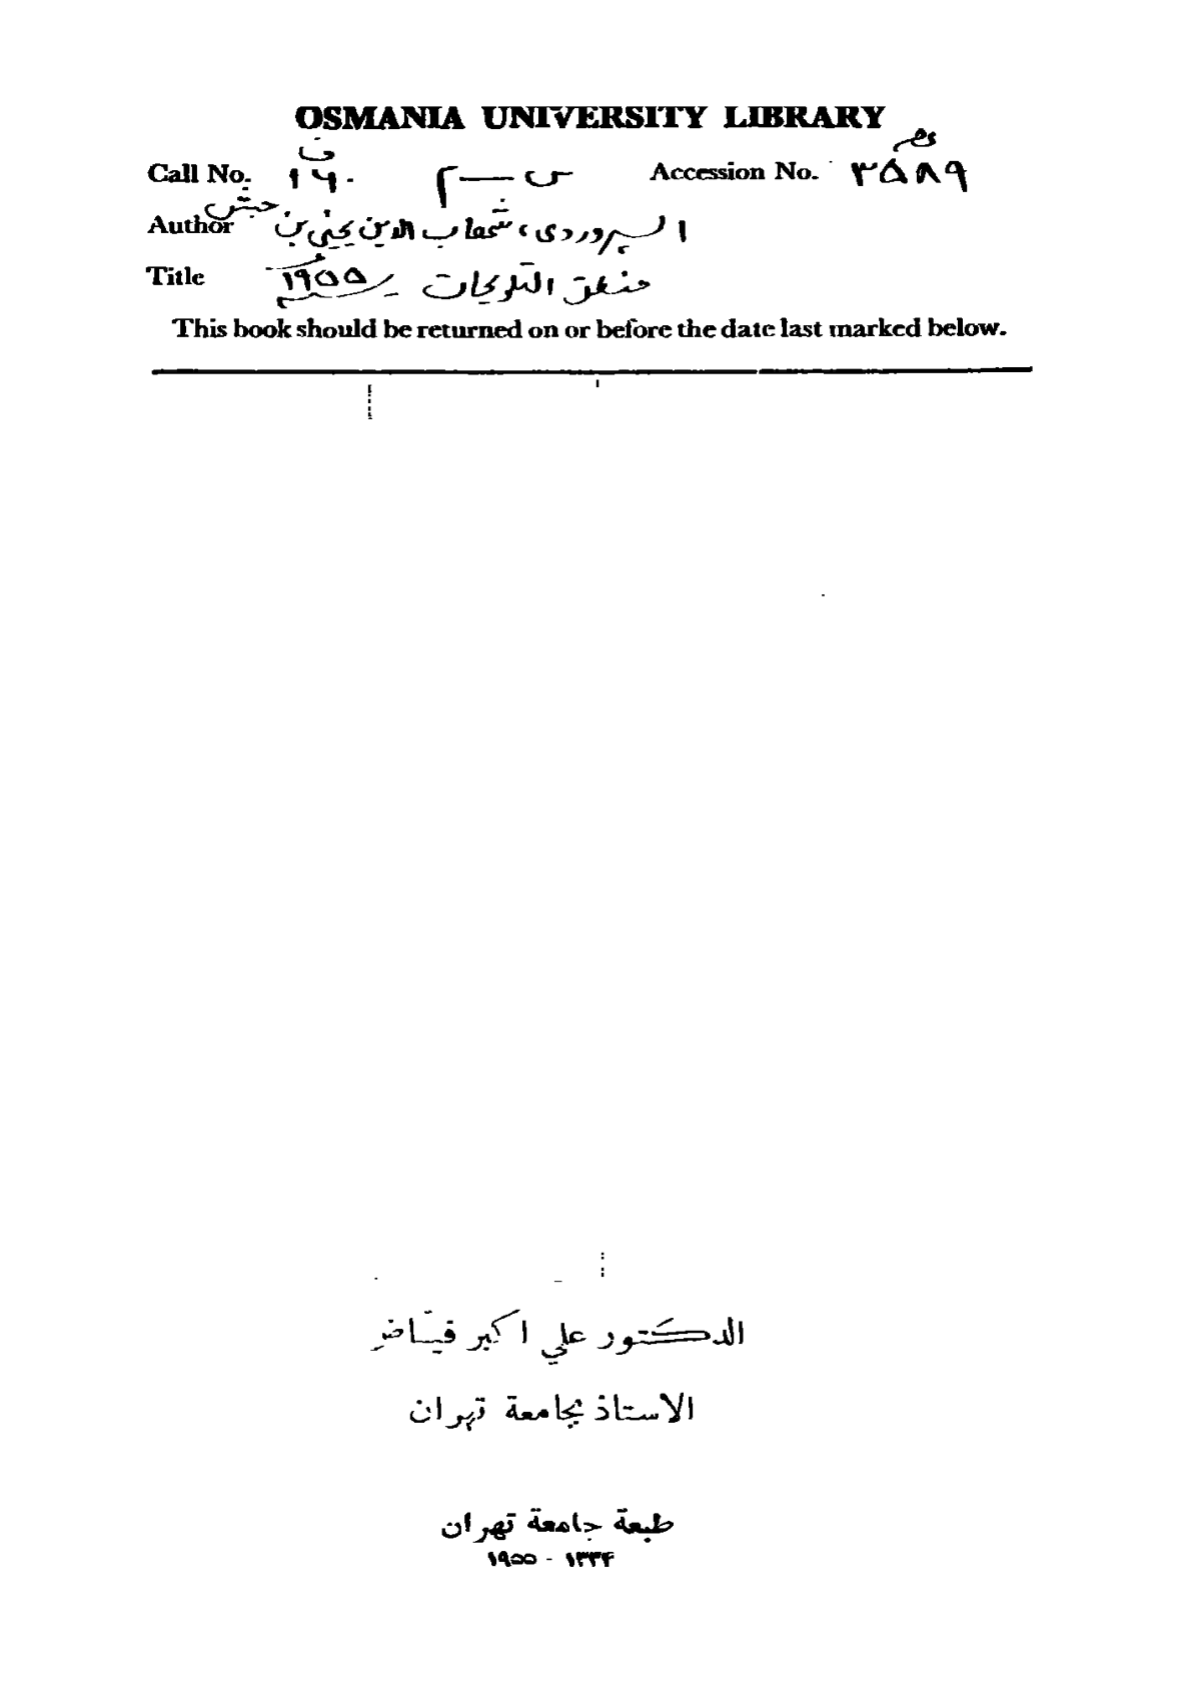 OSMANIA UNIVERSITY LIBRARY
Call No. ف ۱۶۰ س — م Accession No. ۳۵۸۹
Author السهروردی، شهاب الدین یحیٰی بن حبش
Title منطق التلویحات ۱۹۵۵
This book should be returned on or before the date last marked below.
الدكتور علي اكبر فيّاض
الاستاذ بجامعة تهران
طبعة جامعة تهران
۱۳۳۴ - ۱۹۵۵